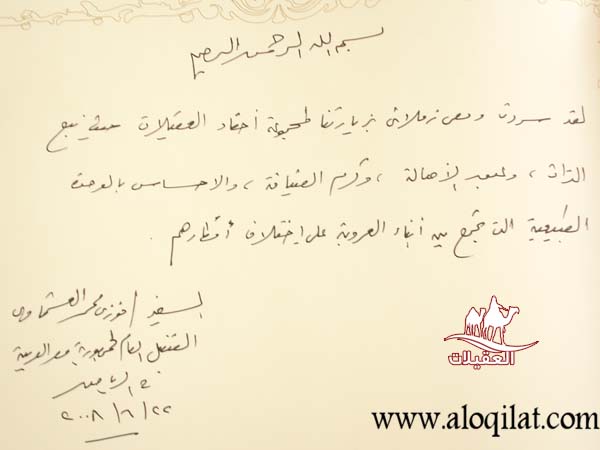 بسم الله الرحمن الرحيم
لقد سررت ومعى زملائى بزيارتنا لمجموعة أحفاد العقيلات حيث نبع
التراث، وعبق الأصالة، وكرم الضيافة، والاحساس بالوحدة
الطبيعية التى تجمع بين أبناء العروبة على اختلاف أقطارهم.
السفير / فوزى محمد العشماوى
القنصل العام لجمهورية مصر العربية
فى الرياض
٢٠٠٨/٦/٢٢
العقيلات
www.aloqilat.com